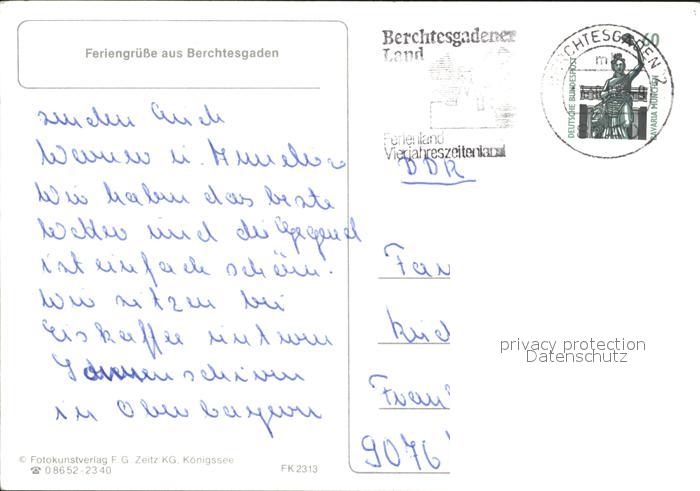 Feriengrüße aus Berchtesgaden
senden Euch
Werner u.
Wir haben das beste
Wetter und die Gegend
ist einfach schön.
Wir sitzen bei
Eiskaffee unterm
Sonnenschirm
in Oberbayern
© Fotokunstverlag F. G. Zeitz KG, Königssee
☎ 0 86 52 - 23 40
FK 2313
Berchtesgadener
Land
Ferienland
Vierjahreszeitenland
BERCHTESGADEN 2
60
DEUTSCHE BUNDESPOST
BAVARIA MÜNCHEN
DDR
Fam
9076
privacy protection
Datenschutz